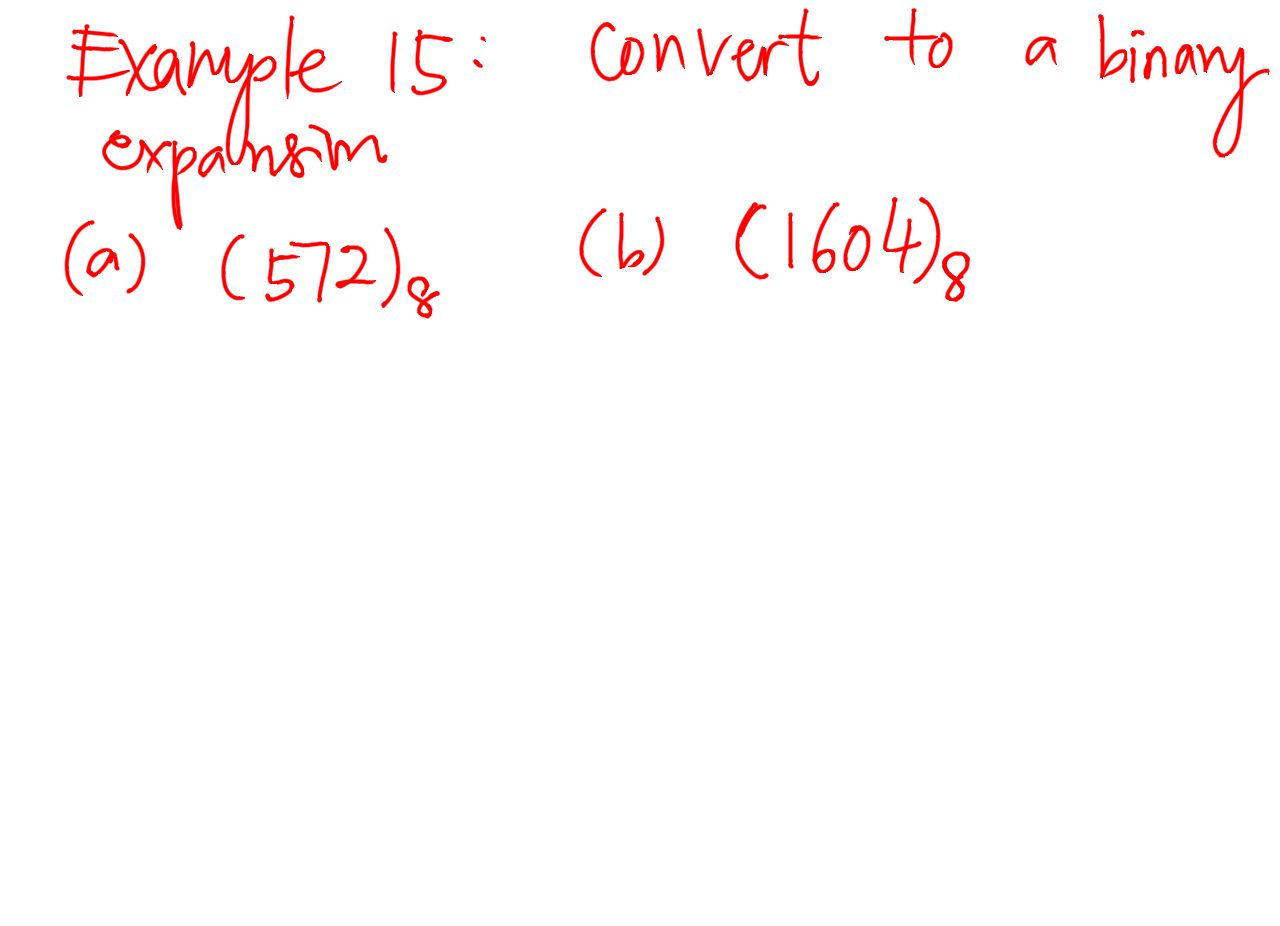 Example 15: Convert to a binary
expansion
(a) (572)₈ (b) (1604)₈